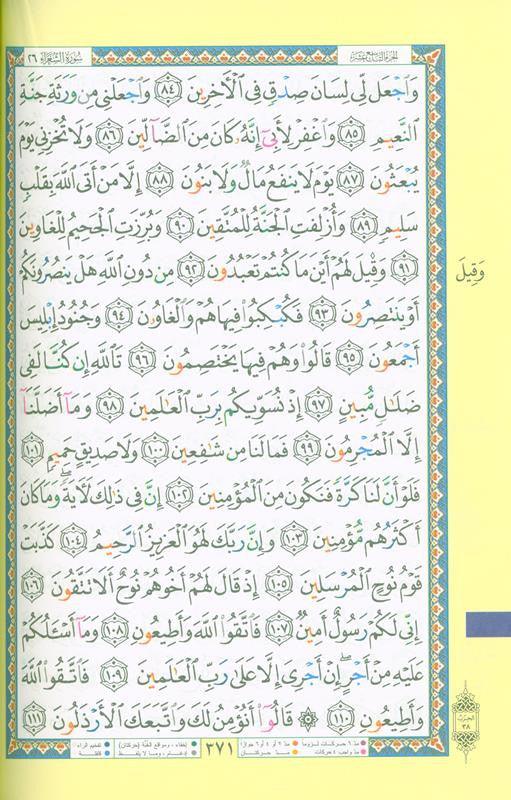 سُورَةُ الشُّعَرَاءِ ٢٦ الجزء التاسع عشر
وَٱجۡعَل لِّي لِسَانَ صِدۡقٖ فِي ٱلۡأٓخِرِينَ ٨٤ وَٱجۡعَلۡنِي مِن وَرَثَةِ جَنَّةِ
ٱلنَّعِيمِ ٨٥ وَٱغۡفِرۡ لِأَبِيٓ إِنَّهُۥ كَانَ مِنَ ٱلضَّآلِّينَ ٨٦ وَلَا تُخۡزِنِي يَوۡمَ
يُبۡعَثُونَ ٨٧ يَوۡمَ لَا يَنفَعُ مَالٞ وَلَا بَنُونَ ٨٨ إِلَّا مَنۡ أَتَى ٱللَّهَ بِقَلۡبٖ
سَلِيمٖ ٨٩ وَأُزۡلِفَتِ ٱلۡجَنَّةُ لِلۡمُتَّقِينَ ٩٠ وَبُرِّزَتِ ٱلۡجَحِيمُ لِلۡغَاوِينَ
٩١ وَقِيلَ لَهُمۡ أَيۡنَ مَا كُنتُمۡ تَعۡبُدُونَ ٩٢ مِن دُونِ ٱللَّهِ هَلۡ يَنصُرُونَكُمۡ
أَوۡ يَنتَصِرُونَ ٩٣ فَكُبۡكِبُواْ فِيهَا هُمۡ وَٱلۡغَاوُۥنَ ٩٤ وَجُنُودُ إِبۡلِيسَ
أَجۡمَعُونَ ٩٥ قَالُواْ وَهُمۡ فِيهَا يَخۡتَصِمُونَ ٩٦ تَٱللَّهِ إِن كُنَّا لَفِي
ضَلَٰلٖ مُّبِينٍ ٩٧ إِذۡ نُسَوِّيكُم بِرَبِّ ٱلۡعَٰلَمِينَ ٩٨ وَمَآ أَضَلَّنَآ
إِلَّا ٱلۡمُجۡرِمُونَ ٩٩ فَمَا لَنَا مِن شَٰفِعِينَ ١٠٠ وَلَا صَدِيقٍ حَمِيمٖ ١٠١
فَلَوۡ أَنَّ لَنَا كَرَّةٗ فَنَكُونَ مِنَ ٱلۡمُؤۡمِنِينَ ١٠٢ إِنَّ فِي ذَٰلِكَ لَأٓيَةٗۖ وَمَا كَانَ
أَكۡثَرُهُم مُّؤۡمِنِينَ ١٠٣ وَإِنَّ رَبَّكَ لَهُوَ ٱلۡعَزِيزُ ٱلرَّحِيمُ ١٠٤ كَذَّبَتۡ
قَوۡمُ نُوحٍ ٱلۡمُرۡسَلِينَ ١٠٥ إِذۡ قَالَ لَهُمۡ أَخُوهُمۡ نُوحٌ أَلَا تَتَّقُونَ ١٠٦
إِنِّي لَكُمۡ رَسُولٌ أَمِينٞ ١٠٧ فَٱتَّقُواْ ٱللَّهَ وَأَطِيعُونِ ١٠٨ وَمَآ أَسۡـَٔلُكُمۡ
عَلَيۡهِ مِنۡ أَجۡرٍۖ إِنۡ أَجۡرِيَ إِلَّا عَلَىٰ رَبِّ ٱلۡعَٰلَمِينَ ١٠٩ فَٱتَّقُواْ ٱللَّهَ
وَأَطِيعُونِ ١١٠ ۞ قَالُوٓاْ أَنُؤۡمِنُ لَكَ وَٱتَّبَعَكَ ٱلۡأَرۡذَلُونَ ١١١
وَقِيلَ
الحزب
٣٨
٣٧١
مدّ ٦ حركات لزوماً مدّ ٢ أو ٤ أو ٦ جوازاً
مدّ واجب ٤ حركات مدّ حركتان
إخفاء، ومواقع الغُنَّة (حركتان) تفخيم الراء
إدغام، وما لا يُلفظ قلقلة